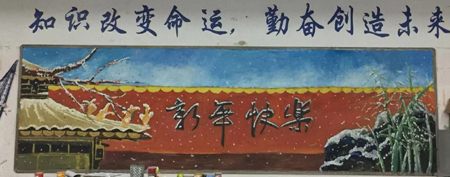 知识改变命运，勤奋创造未来
新年快樂